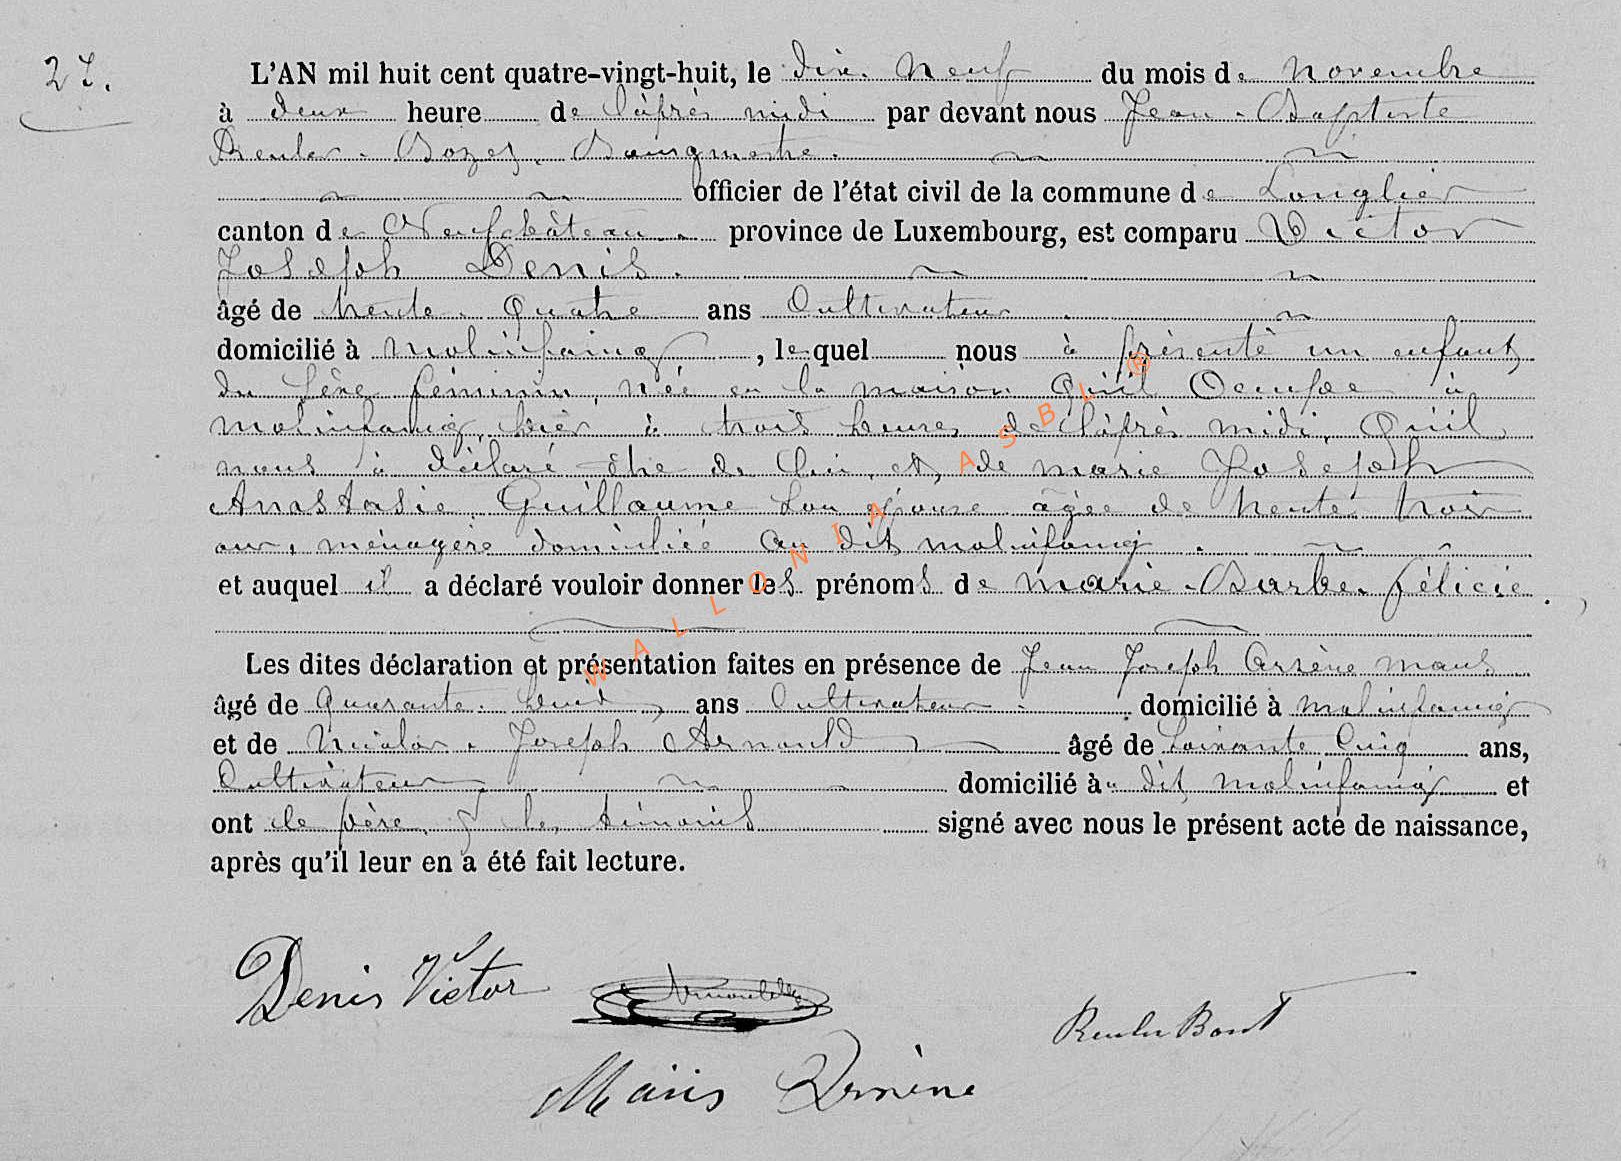 27.
L'AN mil huit cent quatre-vingt-huit, le dix neuf du mois de Novembre
à deux heure de l'après midi par devant nous Jean-Baptiste
Reuler-Bozet, Bourgmestre.
officier de l'état civil de la commune de Longlier
canton de Neufchâteau province de Luxembourg, est comparu Victor
Joseph Denis.
âgé de trente-quatre ans Cultivateur
domicilié à Molinfaing, lequel nous à présenté un enfant
du sexe féminin, née en la maison qu'il occupe à
molinfaing, hier à trois heures de l'après midi, qu'il
nous à déclaré être de lui et, de marie Joseph
Anastasie Guillaume son épouse âgée de trente trois
ans, ménagère domiciliée au dit molinfaing.
et auquel il a déclaré vouloir donner les prénoms de marie-Barbe-félicie.
Les dites déclaration et présentation faites en présence de Jean Joseph Arsène maus
âgé de quarante-huit ans Cultivateur domicilié à molinfaing
et de Nicolas-Joseph Arnould âgé de soixante cinq ans,
Cultivateur domicilié à dit molinfaing et
ont le père & les témoins signé avec nous le présent acte de naissance,
après qu'il leur en a été fait lecture.
Denis Victor
Arnould
Reuler Bozet
Maus Arsène
WALLONIA ASBL ®